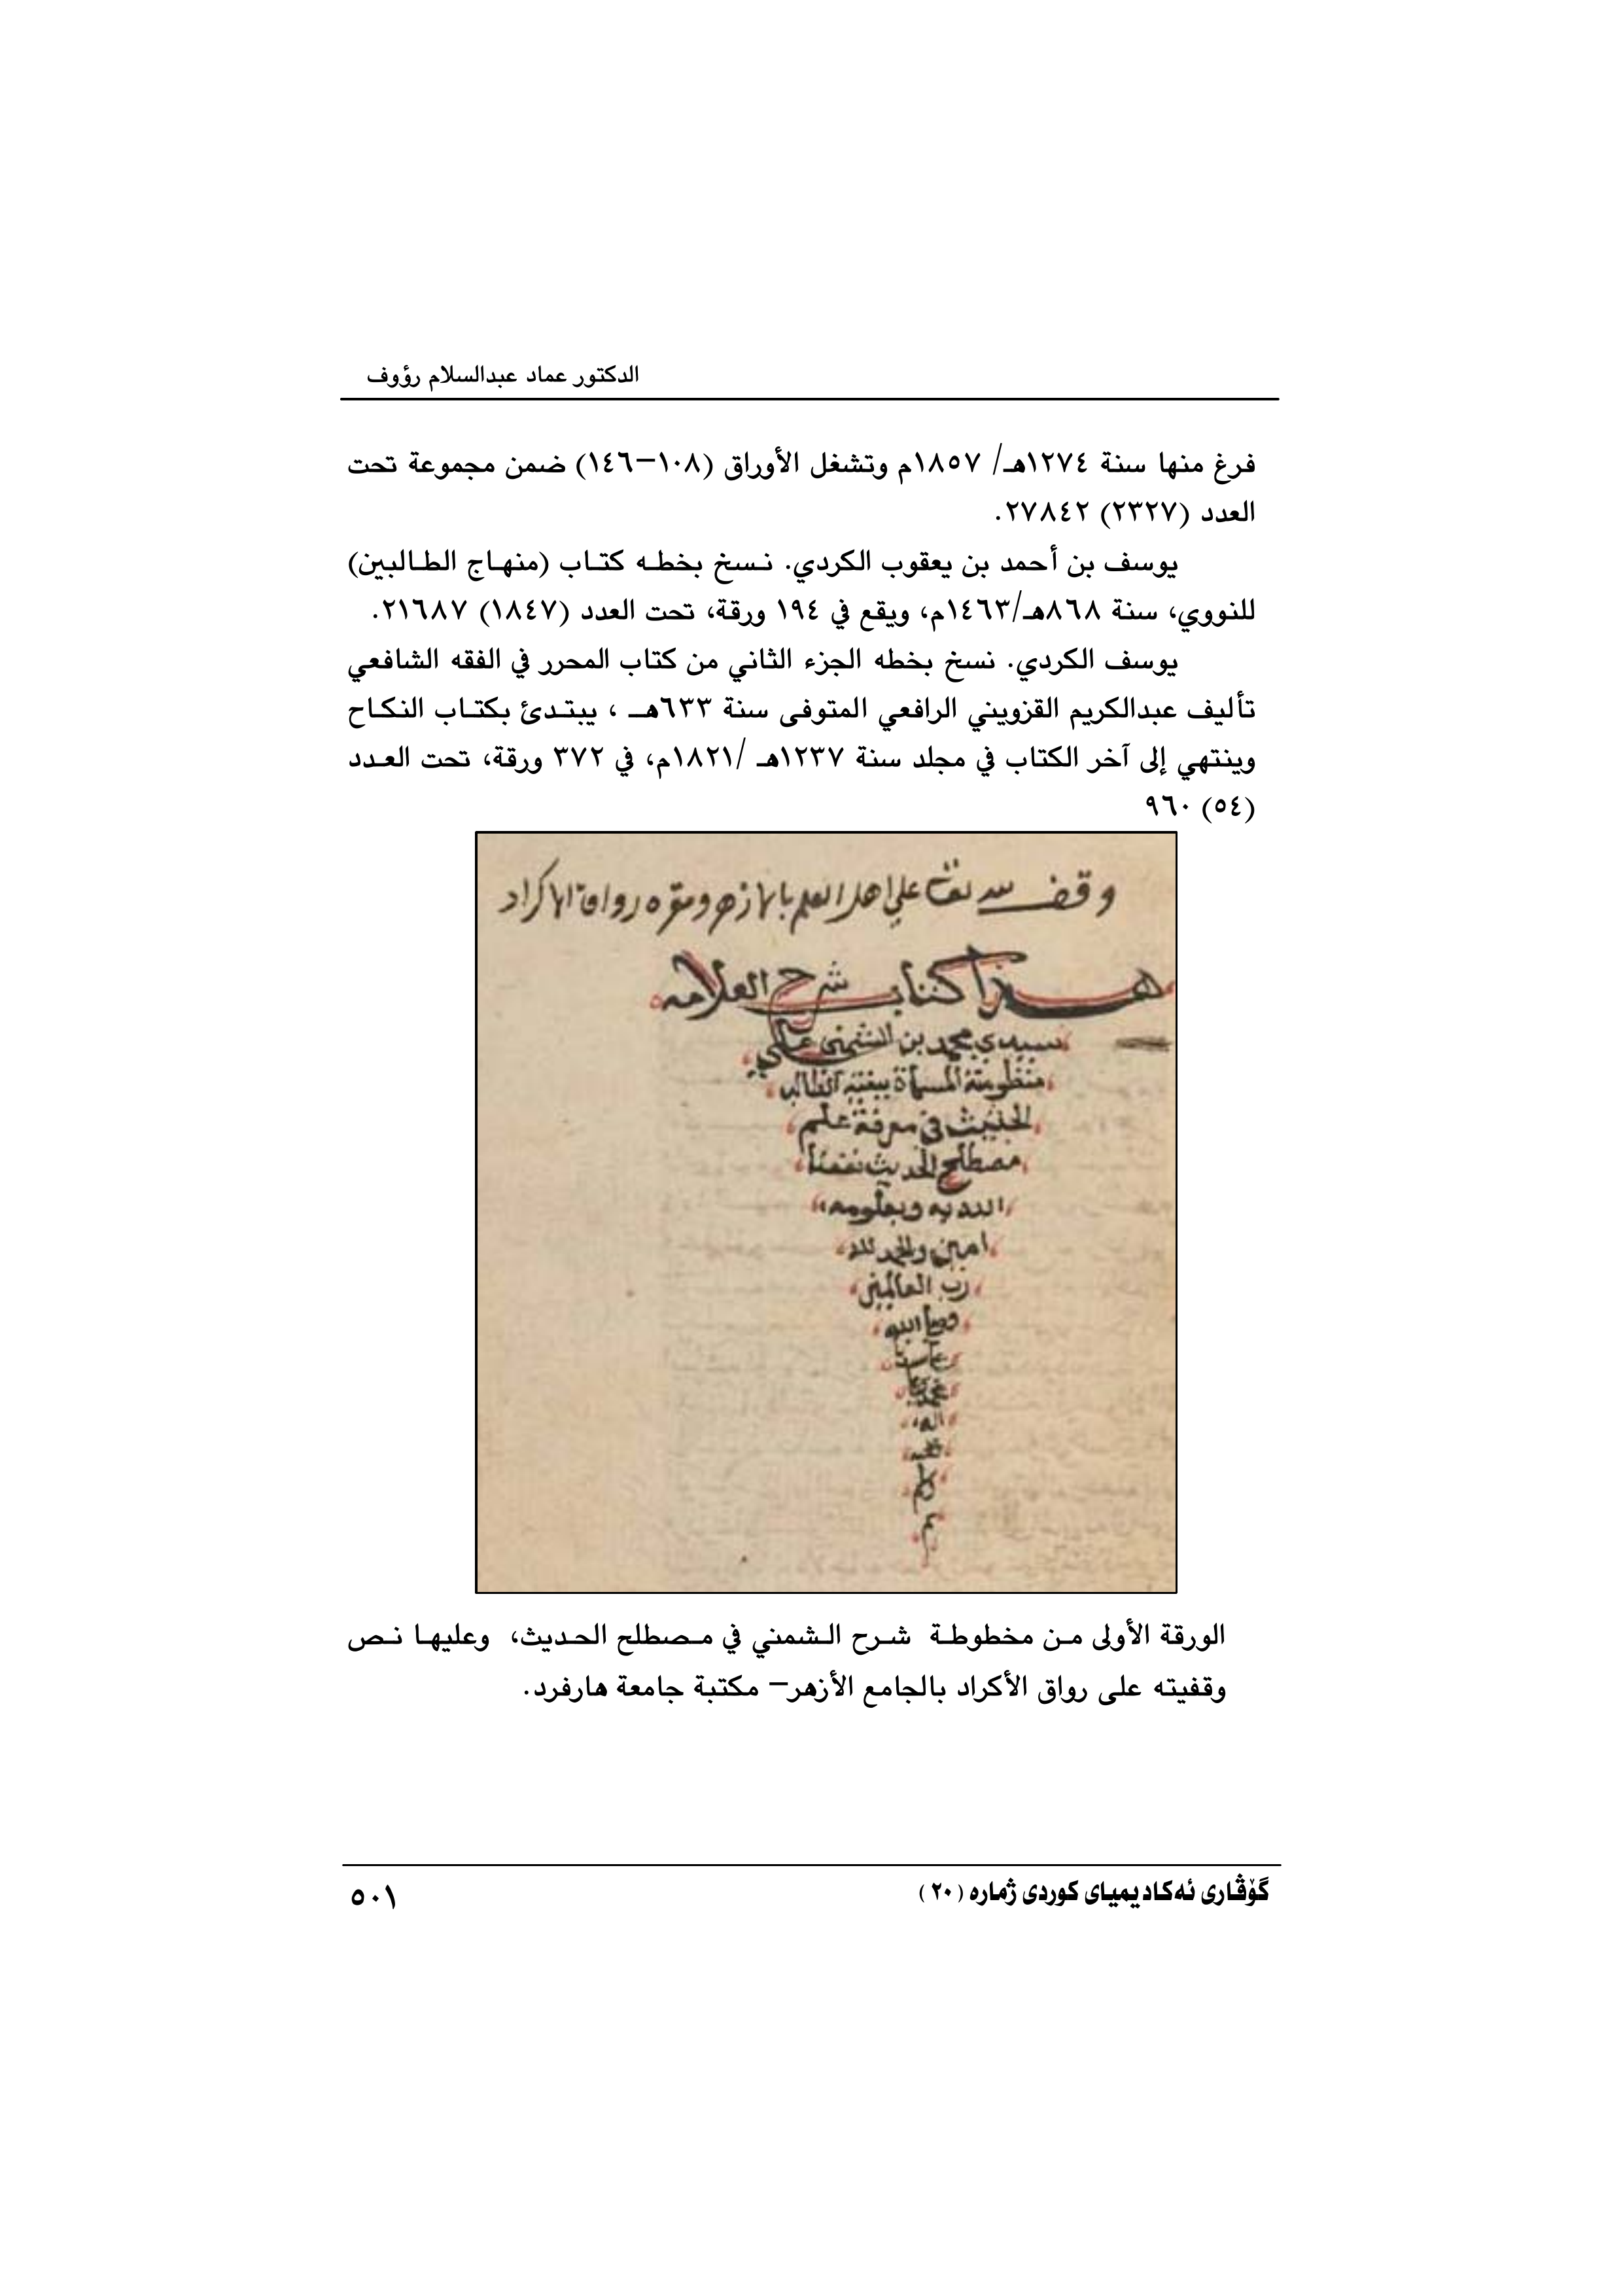 الدكتور عماد عبدالسلام رؤوف
فرغ منها سنة ١٢٧٤هـ/ ١٨٥٧م وتشغل الأوراق (١٠٨–١٤٦) ضمن مجموعة تحت
العدد (٢٣٢٧) ٢٧٨٤٢.
يوسف بن أحمد بن يعقوب الكردي. نسخ بخطه كتاب (منهاج الطالبين)
للنووي، سنة ٨٦٨هـ/١٤٦٣م، ويقع في ١٩٤ ورقة، تحت العدد (١٨٤٧) ٢١٦٨٧.
يوسف الكردي. نسخ بخطه الجزء الثاني من كتاب المحرر في الفقه الشافعي
تأليف عبدالكريم القزويني الرافعي المتوفى سنة ٦٣٣هـ ، يبتدئ بكتاب النكاح
وينتهي إلى آخر الكتاب في مجلد سنة ١٢٣٧هـ /١٨٢١م، في ٣٧٢ ورقة، تحت العدد
(٥٤) ٩٦٠
وقف على اهل العلم بالازهر ومقره رواق الاكراد
هذا كتاب شرح العلامه
سيدي محمد بن الشمني على
منظومته المسماة ببغية الطالب
الحثيث في معرفة علم
مصطلح الحديث نفعنا
الله به وبعلومه
امين والحمد لله
رب العالمين
وصلى الله
على سيدنا
محمد
الورقة الأولى من مخطوطة شرح الشمني في مصطلح الحديث، وعليها نص
وقفيته على رواق الأكراد بالجامع الأزهر– مكتبة جامعة هارفرد.
گۆڤاری ئەکادیمیای کوردی ژمارە (٢٠)
٥٠١